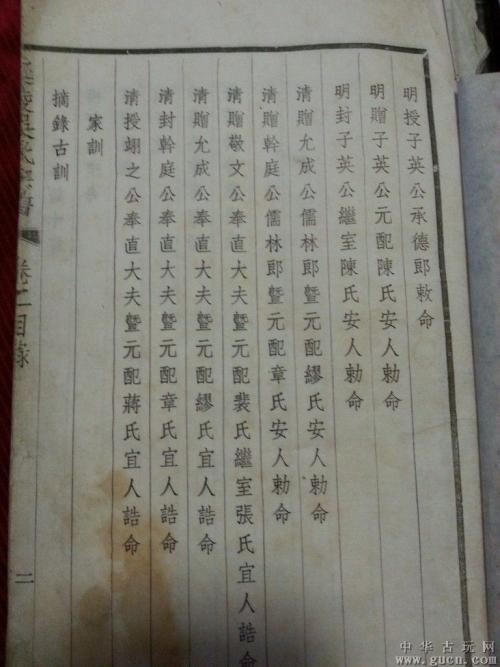 明授子英公承德郎敕命
明贈子英公元配陳氏安人勅命
明封子英公繼室陳氏安人勅命
清贈允成公儒林郎暨元配繆氏安人勅命
清贈幹庭公儒林郎暨元配章氏安人勅命
清贈敬文公奉直大夫暨元配裴氏繼室張氏宜人誥命
清贈允成公奉直大夫暨元配繆氏宜人誥命
清封幹庭公奉直大夫暨元配章氏宜人誥命
清授翊之公奉直大夫暨元配蔣氏宜人誥命
家訓
摘錄古訓
氏宗譜
目錄
二
中华古玩网
www.gucn.com